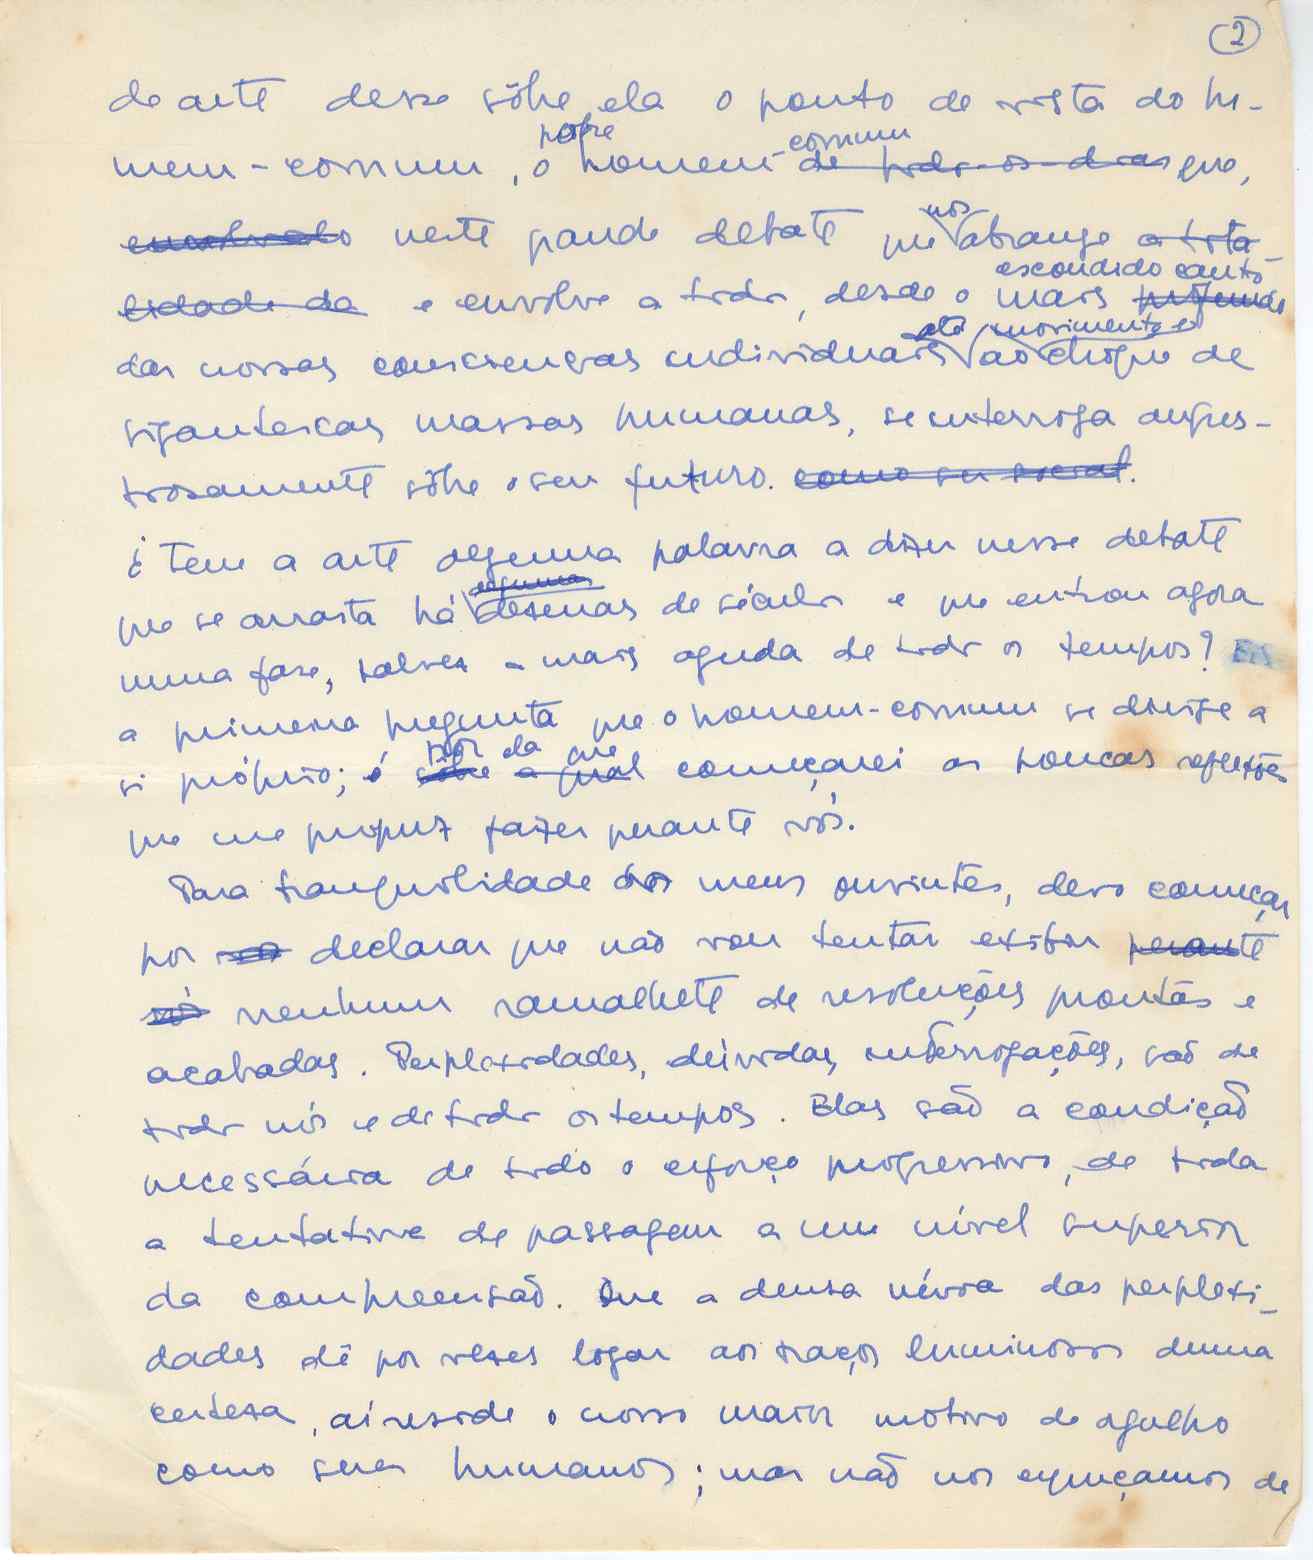 (2)
de arte desse sôbre ela o ponto de vista do ho-
pobre comum
mem-comum, o homem - de todos os dias que,
nós
envolvido neste grande debate que abrange a tota-
escondido canto
lidade da e envolve a todos, desde o mais profundo
até movimento e
das nossas consciencias individuais ao choque de
gigantescas massas humanas, se interroga angus-
tiosamente sôbre o seu futuro. como ser social.
¿Tem a arte alguma palavra a dizer nesse debate
algumas
que se arrasta há dezenas de séculos e que entrou agora
numa fase, talvez a mais aguda de todos os tempos? Eis
a primeira pregunta que o homem-comum se dirige a
por da que
si próprio; é sôbre a qual começarei as poucas reflexões
que me propuz fazer perante vós.
Para tranquilidade dos meus ouvintes, devo começar
por declarar que não vou tentar exibir perante
vós nenhum ramalhete de resoluções prontas e
acabadas. Perplexidades, dúvidas, interrogações, são de
todos nós e de todos os tempos. Elas são a condição
necessária de todo o esforço progressivo, de toda
a tentativa de passagem a um nível superior
da compreensão. Que a densa névoa das perplexi-
dades dê por vezes logar aos traços luminosos duma
certeza, aí reside o nosso maior motivo de orgulho
como seres humanos; mas não nos esqueçamos de